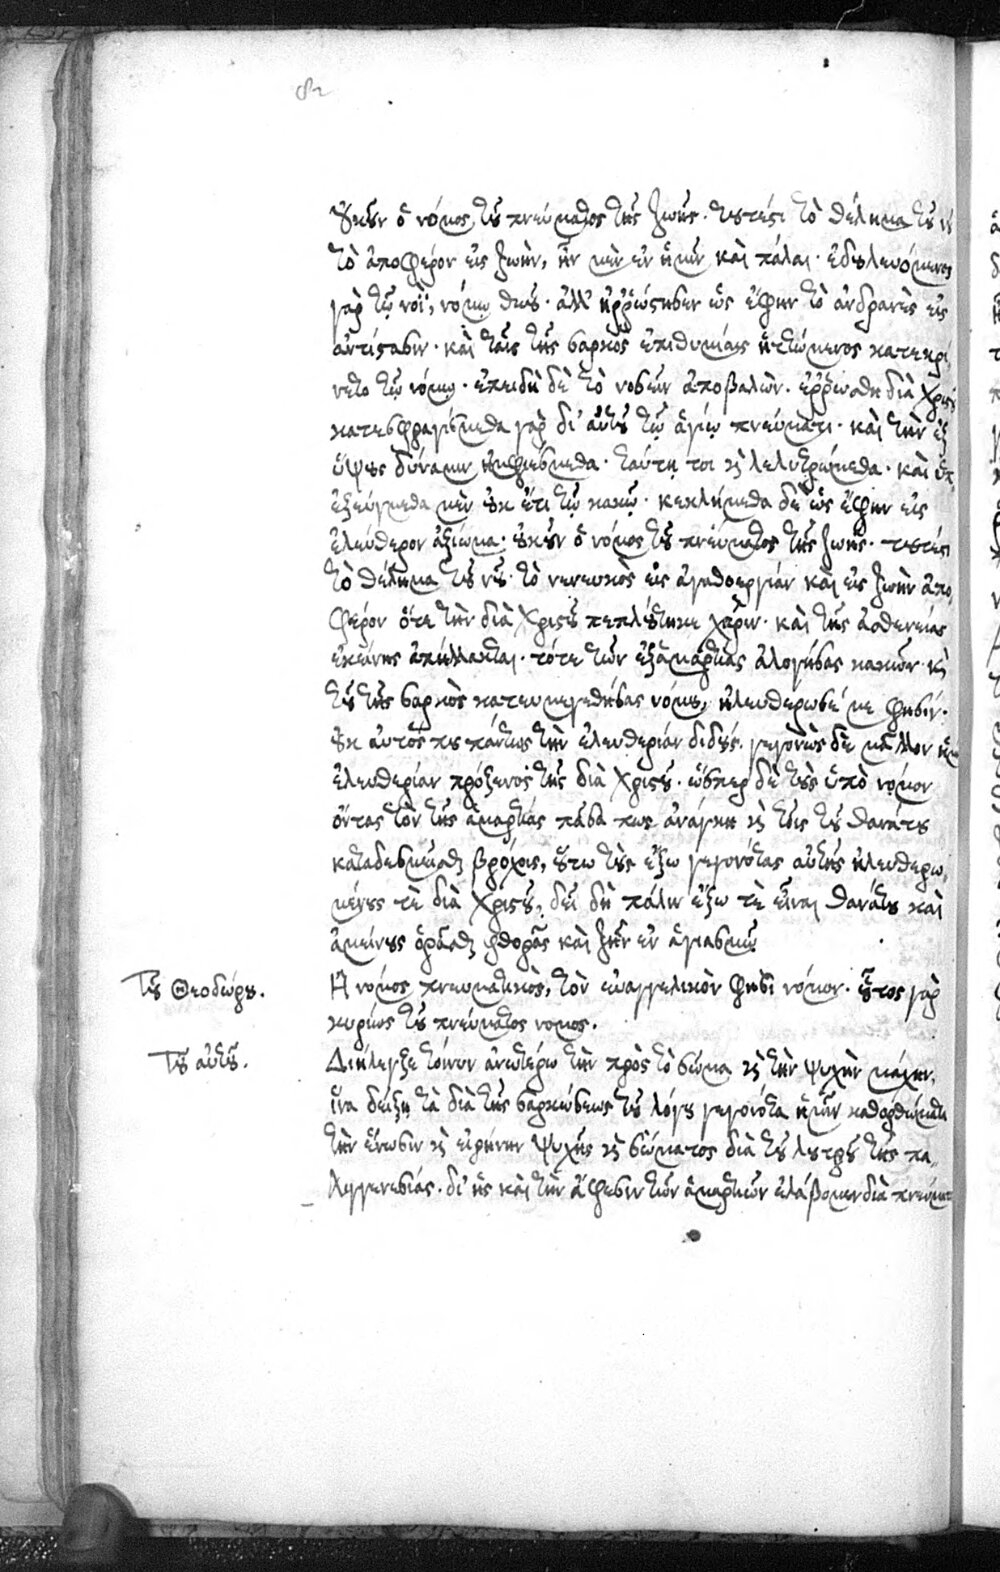 οὐκοῦν ὁ νόμος τοῦ πνεύματος τῆς ζωῆς· τουτέστι τὸ θέλημα τοῦ νοῦ
τὸ ἀποφέρον εἰς ζωὴν, ἦν μὲν ἐν ἡμῖν καὶ πάλαι· ἐδουλευόμεν
γὰρ τῷ νοῒ, νόμῳ θεοῦ· ἀλλ' ἠρρώστησεν ὡς ἔφην τὸ ἀνδρανὲς εἰς
ἀντίστασιν· καὶ ταῖς τῆς σαρκὸς ἐπιθυμίαις ἡττώμενος κατεκρί
νετο τῷ νόμῳ· ἐπειδὴ δὲ τὸ νοσεῖν ἀποβαλὼν· ἐρρώσθη διὰ Χριστοῦ
κατεσφραγίσμεθα γὰρ δι' αὐτοῦ τῷ ἁγίῳ πνεύματι· καὶ τὴν ἐξ
ὕψους δύναμιν ἠμφιέσμεθα· ταύτῃ τοι κ λελυτρώμεθα· καὶ ὑπ
εζεύγμεθα μὲν οὐκ ἔτι τῷ κακῷ· κεκλήμεθα δὲ ὡς ἔφην εἰς
ἐλεύθερον ἀξίωμα· οὐκοῦν ὁ νόμος τοῦ πνεύματος τῆς ζωῆς· τουτέστι
τὸ θέλημα τοῦ νοῦ· τὸ νενευκὸς εἰς ἀγαθοεργίαν καὶ εἰς ζωὴν ἀπο
φέρον ὅτε τὴν διὰ Χριστοῦ πεπλούτηκε χάριν· καὶ τῆς ἀσθενείας
ἐκείνης ἀπήλλακται· τότε τῶν ἐξ ἁμαρτίας ἀλογήσας κακῶν· κ
τοῦ τῆς σαρκὸς κατευμεγεθήσας νόμου, ἠλευθέρωσέ με φησίν·
οὐκ αὐτός που πάντως τὴν ἐλευθερίαν διδούς· γεγονὼς δὲ μᾶλλον ἡμῖν
ἐλευθερίαν πρόξενος τῆς διὰ Χριστοῦ· ὥσπερ δὲ τοὺς ὑπὸ νόμον
ὄντας τὸν τῆς ἁμαρτίας πᾶσα πως ἀνάγκη κ τοῖς τοῦ θανάτου
καταδεσμεῖσθαι βρόχοις, οὕτω τοὺς ἔξω γεγονότας αὐτῆς ἠλευθερω
μένους τὲ διὰ Χριστοῦ, δεῖ δὴ πάλιν ἔξω τὲ εἶναι θανάτου καὶ
ἀμείνους ὁρᾶσθαι φθορᾶς καὶ ζῆν ἐν ἁγιασμῷ
Τοῦ Θεοδώρου. Ἢ νόμος πνευματικὸς, τὸν εὐαγγελικὸν φησὶ νόμον· οὗτος γὰρ
κυρίως τοῦ πνεύματος νομος.
Τοῦ αὐτοῦ. Διήλεγξε τοίνυν ἀνωτέρω τὴν πρὸς τὸ σῶμα κ τὴν ψυχὴν μάχην,
ἵνα δείξῃ τὰ διὰ τῆς σαρκώσεως τοῦ λόγου γεγονότα ἡμῖν κατορθώματα
τὴν ἕνωσιν κ εἰρήνην ψυχῆς κ σώματος διὰ τοῦ λουτροῦ τῆς πα
λιγγενεσίας· δι' ἧς καὶ τὴν ἄφεσιν τῶν ἁμαρτιῶν ἐλάβομεν διὰ πνεύματος